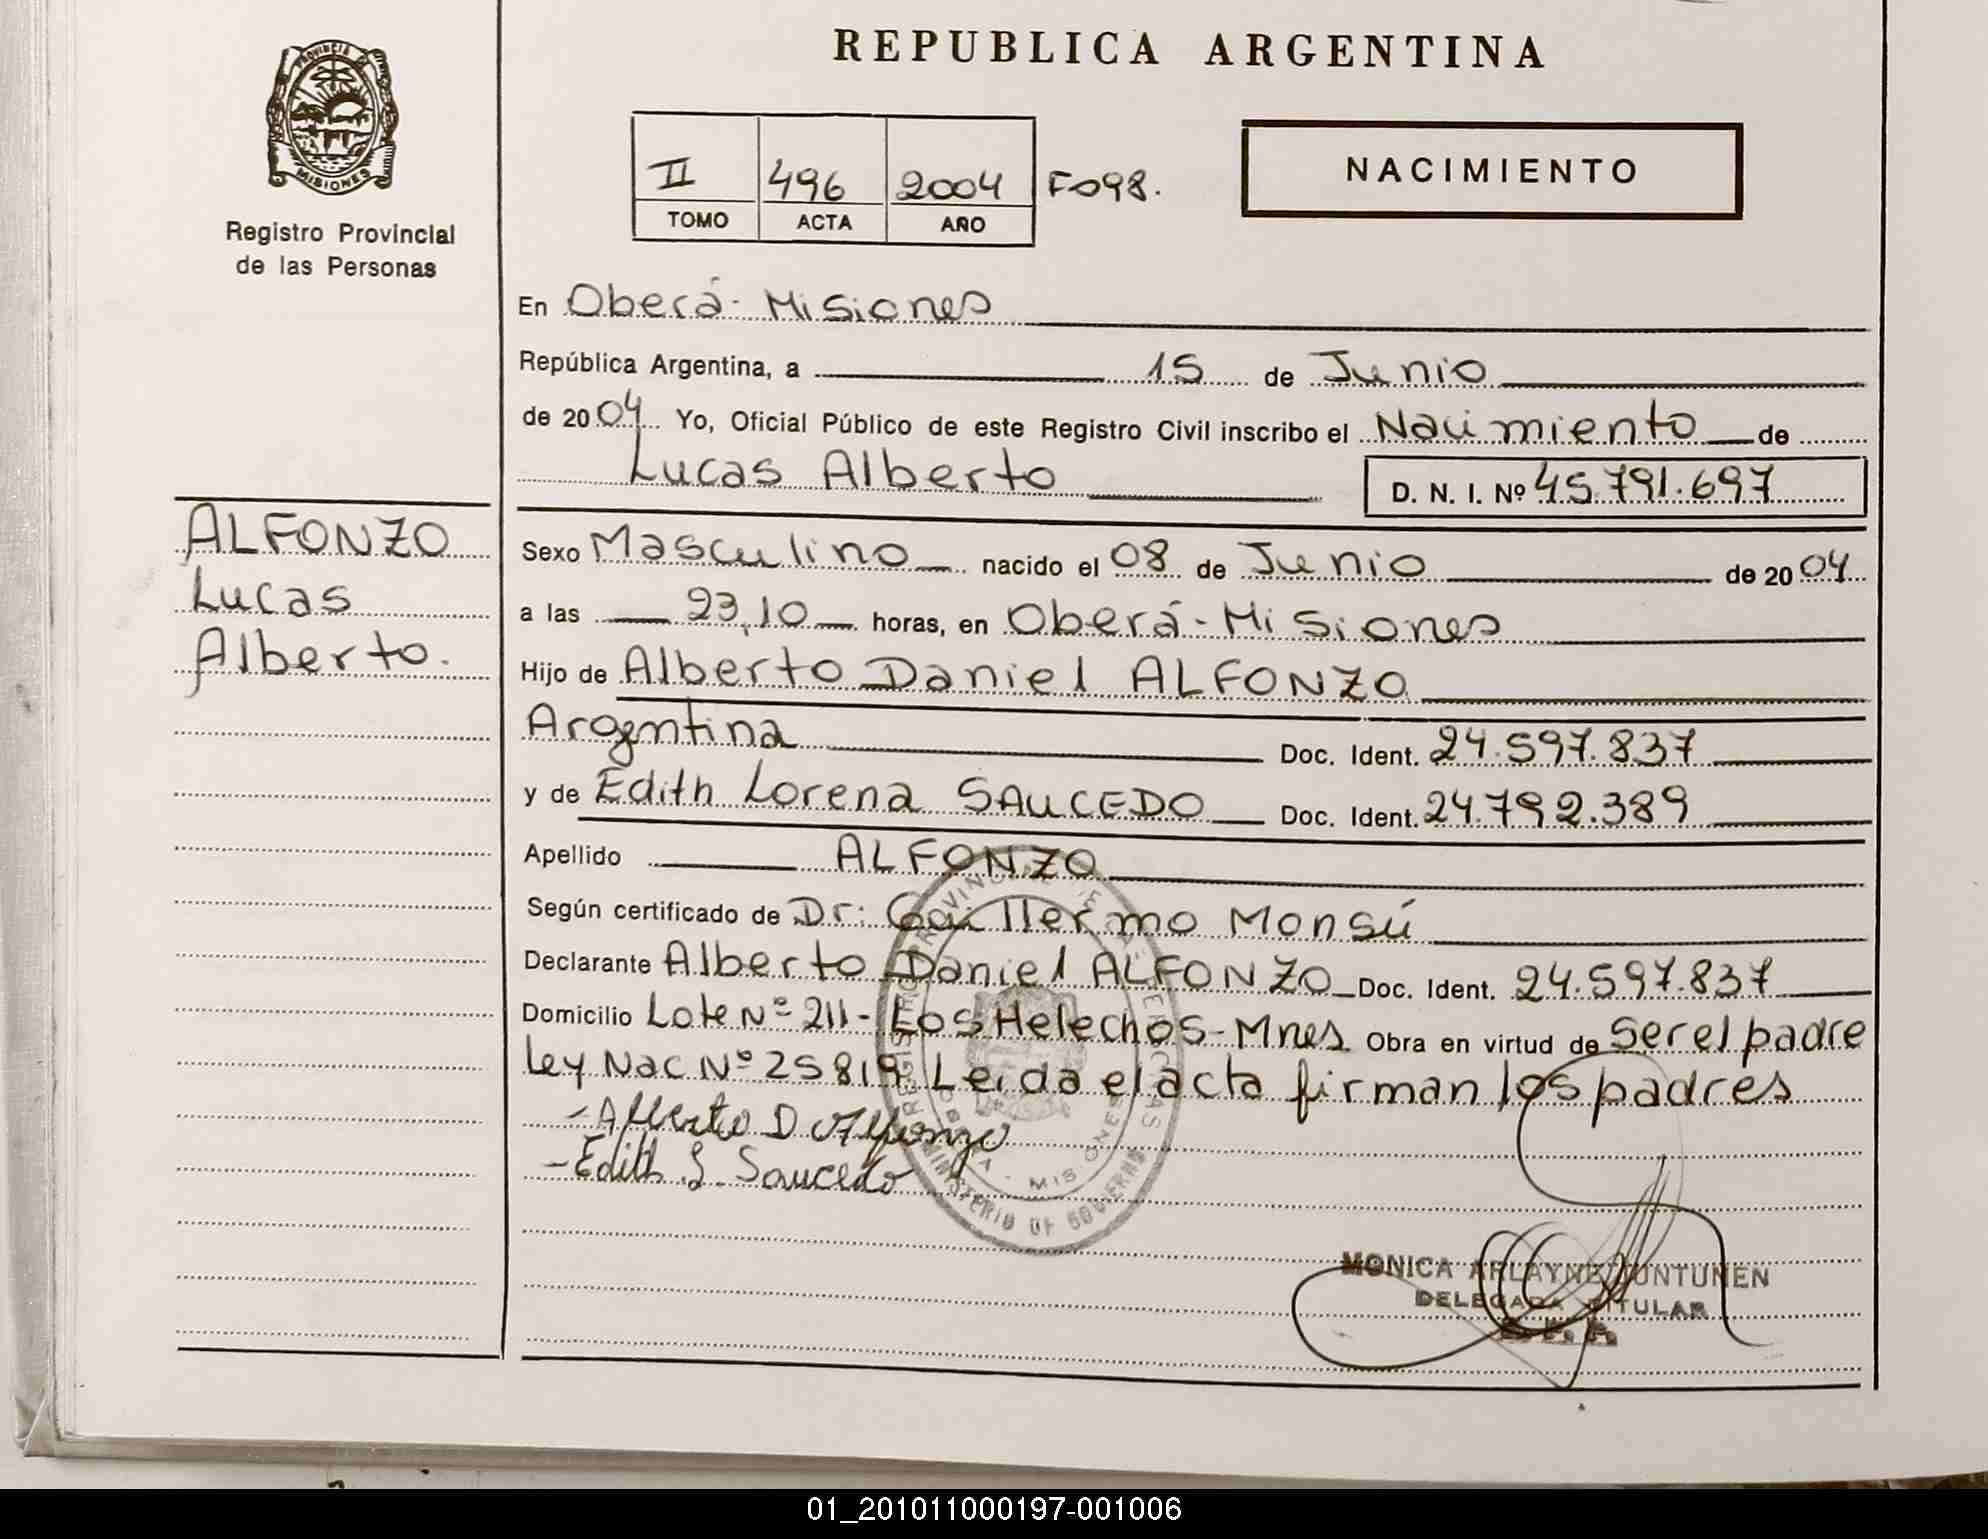 PROVINCIA DE
MISIONES
Registro Provincial
de las Personas
REPUBLICA ARGENTINA
II 496 2004 Fº98.
TOMO ACTA AÑO
NACIMIENTO
En Oberá - Misiones
República Argentina, a 15 de Junio
de 2004 Yo, Oficial Público de este Registro Civil inscribo el Nacimiento de
Lucas Alberto D. N. I. Nº 45.791.697
ALFONZO
Lucas
Alberto.
Sexo Masculino nacido el 08 de Junio de 2004
a las 23,10 horas, en Oberá - Misiones
Hijo de Alberto Daniel ALFONZO
Argentina Doc. Ident. 24.597.837
y de Edith Lorena SAUCEDO Doc. Ident. 24.792.389
Apellido ALFONZO
Según certificado de Dr: Guillermo Monsú
Declarante Alberto Daniel ALFONZO Doc. Ident. 24.597.837
Domicilio Lote Nº 211 - Los Helechos - Mnes Obra en virtud de Ser el padre
Ley Nac Nº 25819 Leida el acta firman los padres
- Alberto D Alfonzo
- Edith L. Saucedo
REGISTRO PROVINCIAL DE LAS PERSONAS
MISIONES
MINISTERIO DE GOBIERNO
MONICA ARLAYNE JUNTUNEN
DELEGADA TITULAR
01_201011000197-001006